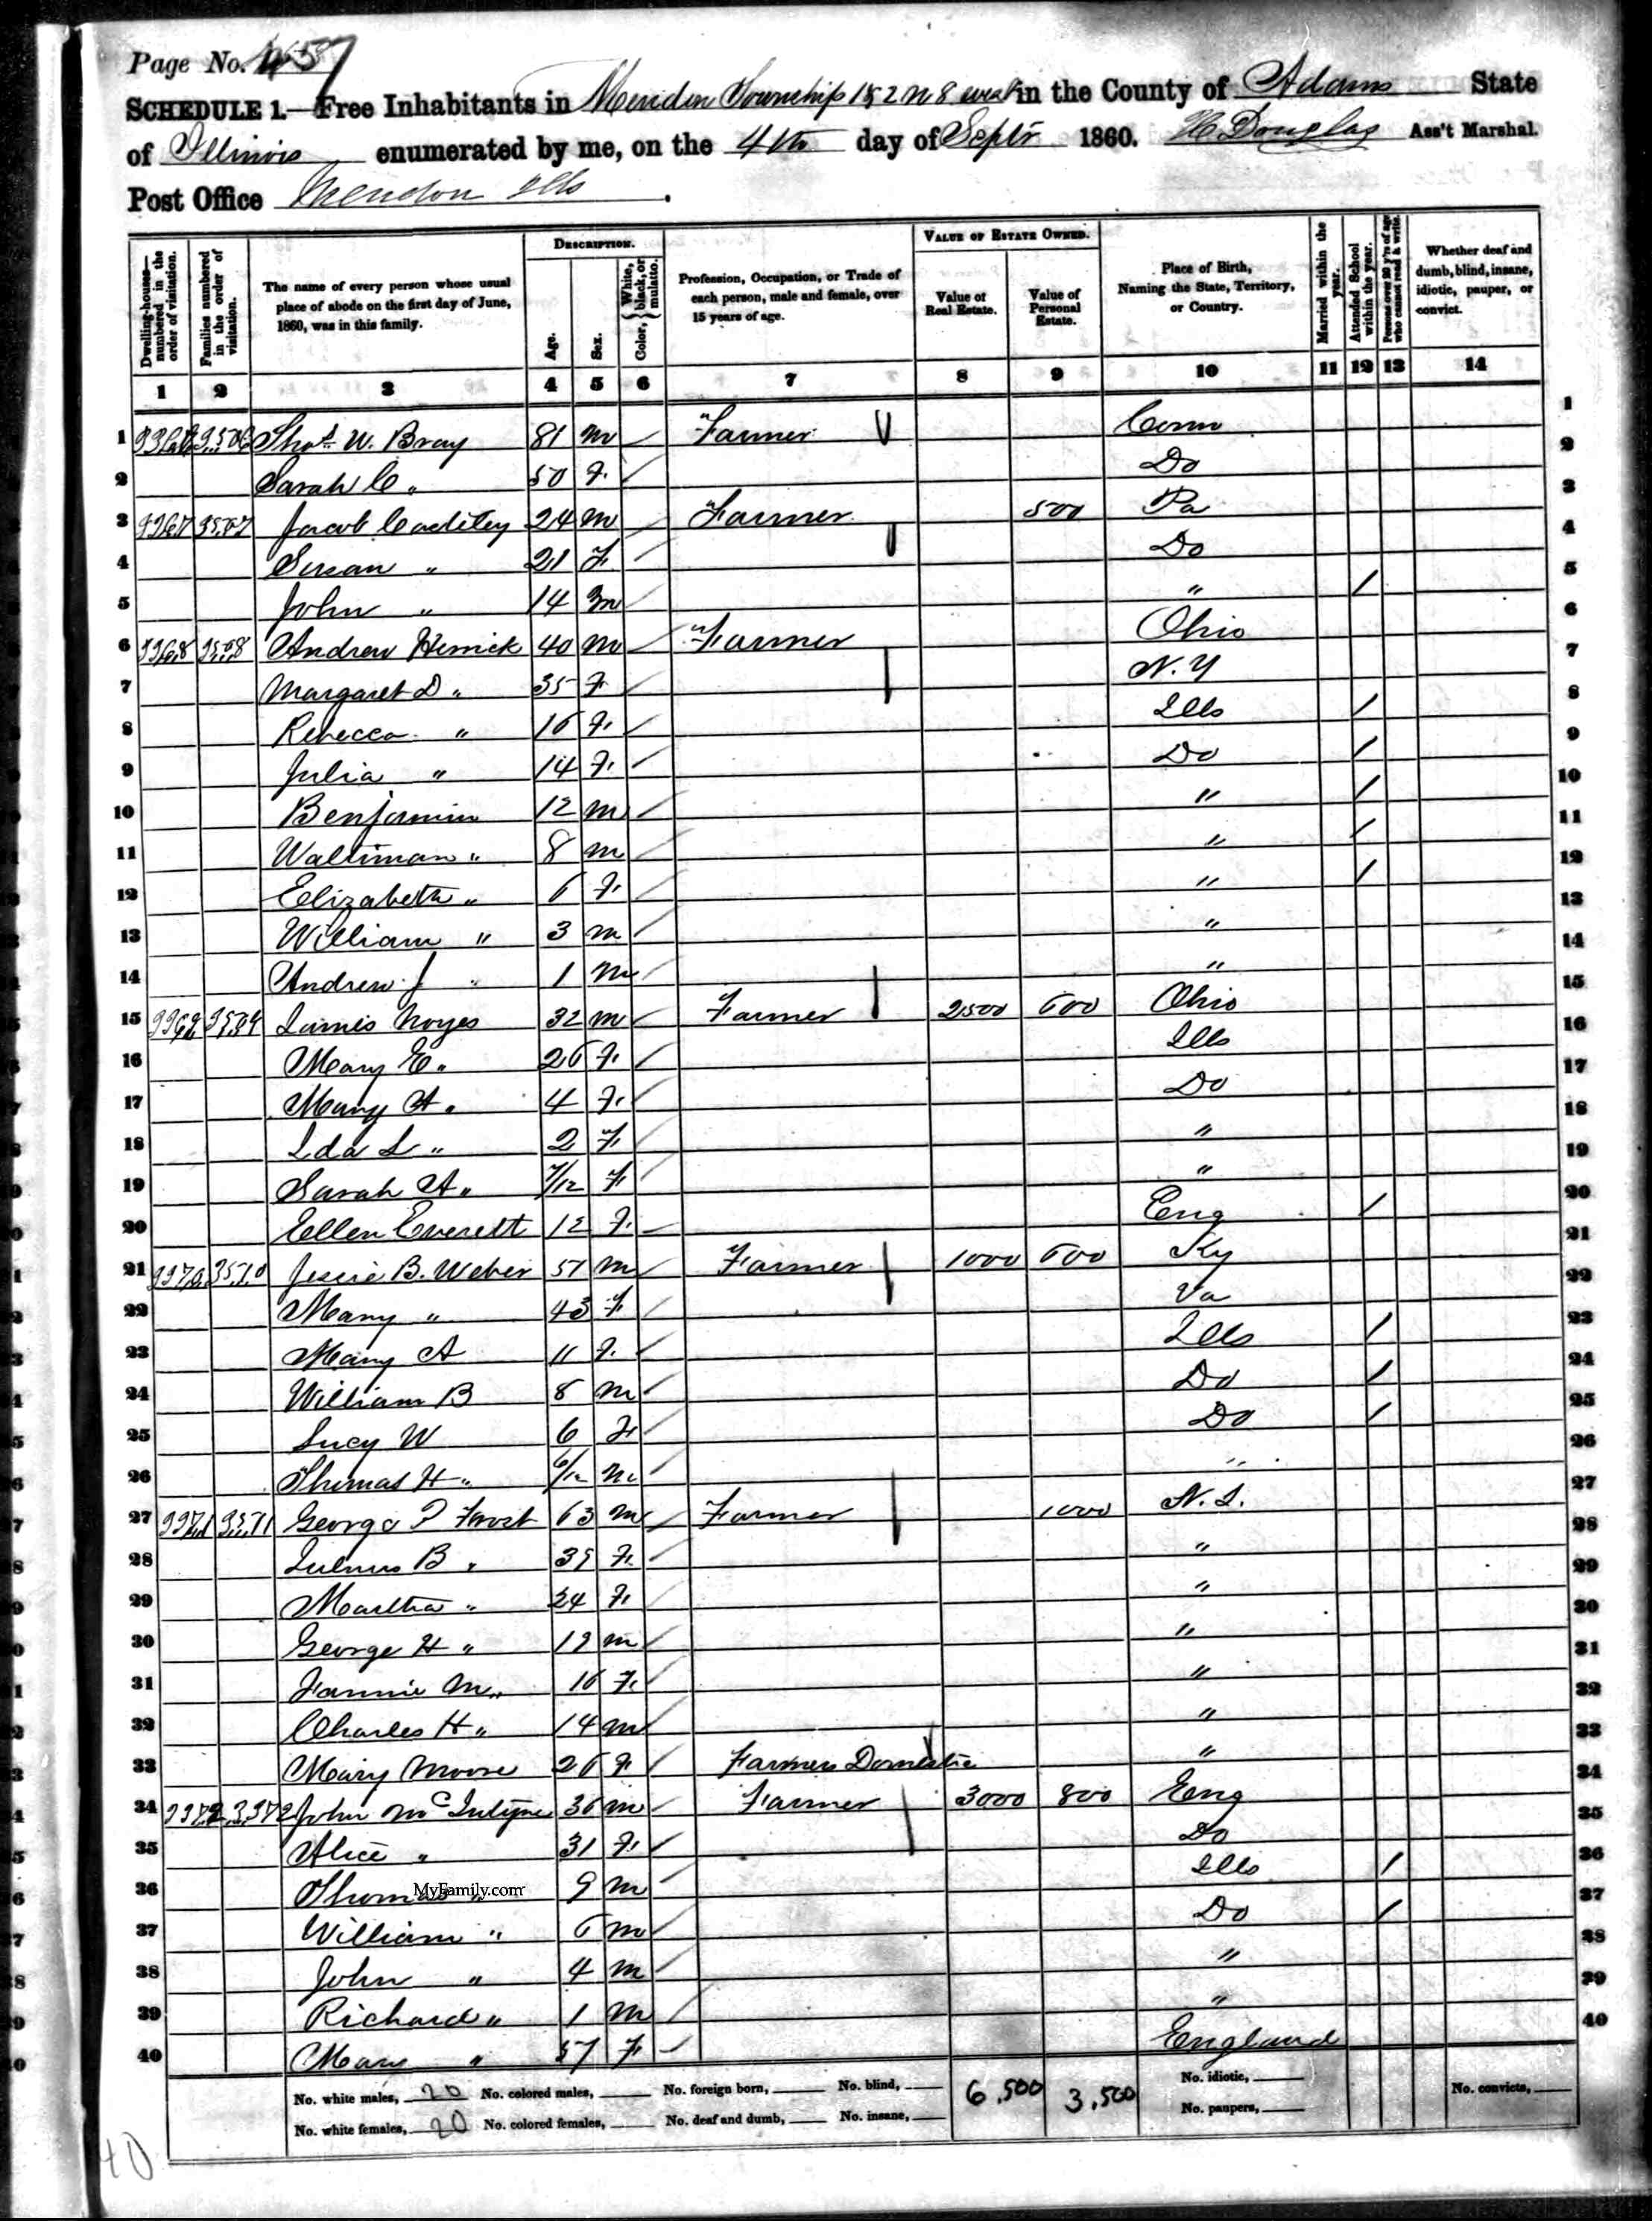 Page No. 457
SCHEDULE 1.—Free Inhabitants in Mendon Township 1 & 2 N 8 west in the County of Adams State
of Illinois enumerated by me, on the 4th day of Septr 1860. H Douglas Ass't Marshal.
Post Office Mendon Ills.
Dwelling-houses— numbered in the order of visitation. Families numbered in the order of visitation. The name of every person whose usual place of abode on the first day of June, 1860, was in this family. DESCRIPTION. Age. Sex. Color, {White, black, or mulatto. Profession, Occupation, or Trade of each person, male and female, over 15 years of age. VALUE OF ESTATE OWNED. Value of Real Estate. Value of Personal Estate. Place of Birth, Naming the State, Territory, or Country. Married within the year. Attended School within the year. Persons over 20 y'rs of age who cannot read & write. Whether deaf and dumb, blind, insane, idiotic, pauper, or convict.
1 2 3 4 5 6 7 8 9 10 11 12 13 14
1 3506 Thos. W. Bray 81 m Farmer Conn 1
2 Sarah C " 50 F. Do 2
3 3507 Jacob 24 m Farmer 500 Pa 3
4 Susan " 21 F Do 4
5 John " 14 m " / 5
6 3508 Andrew Herrick 40 m Farmer Ohio 6
7 Margaret D " 35 F N. Y 7
8 Rebecca " 16 F. Ills / 8
9 Julia " 14 F. Do / 9
10 Benjamin 12 m " / 10
11 " 8 m " / 11
12 Elizabeth " 6 F. " / 12
13 William " 3 m " 13
14 Andrew J " 1 m " 14
15 James Noyes 32 m Farmer 2500 600 Ohio 15
16 Mary E. " 26 F. Ills 16
17 Mary A. " 4 F. Do 17
18 Ida L " 2 F. " 18
19 Sarah A. " 7/12 F " 19
20 Ellen Everett 12 F. Eng / 20
21 3510 Jessie B. Weber 51 m Farmer 1000 600 Ky 21
22 Mary " 43 F Va 22
23 Mary A 11 F. Ills / 23
24 William B 8 m Do / 24
25 Lucy W 6 F Do / 25
26 Thomas H " 6/12 m " 26
27 George P Frost 63 m Farmer 1000 27
28 B " 39 F. " 28
29 Martha " 24 F. " 29
30 George H " 19 m " 30
31 Fannie M " 16 F. " 31
32 Charles H " 14 m " 32
33 Mary Moore 26 F Farmers Domestic " 33
34 John McIntyre 36 m Farmer 3000 800 Eng 34
35 Alice " 31 F. Do 35
36 Thomas " 9 m Ills / 36
37 William " 6 m Do / 37
38 John " 4 m " 38
39 Richard " 1 m " 39
40 Mary " 57 F England 40
MyFamily.com
No. white males, 20 No. colored males, No. foreign born, No. blind, 6,500 3,500 No. idiotic, No. convicts,
No. white females, 20 No. colored females, No. deaf and dumb, No. insane, No. paupers,
40